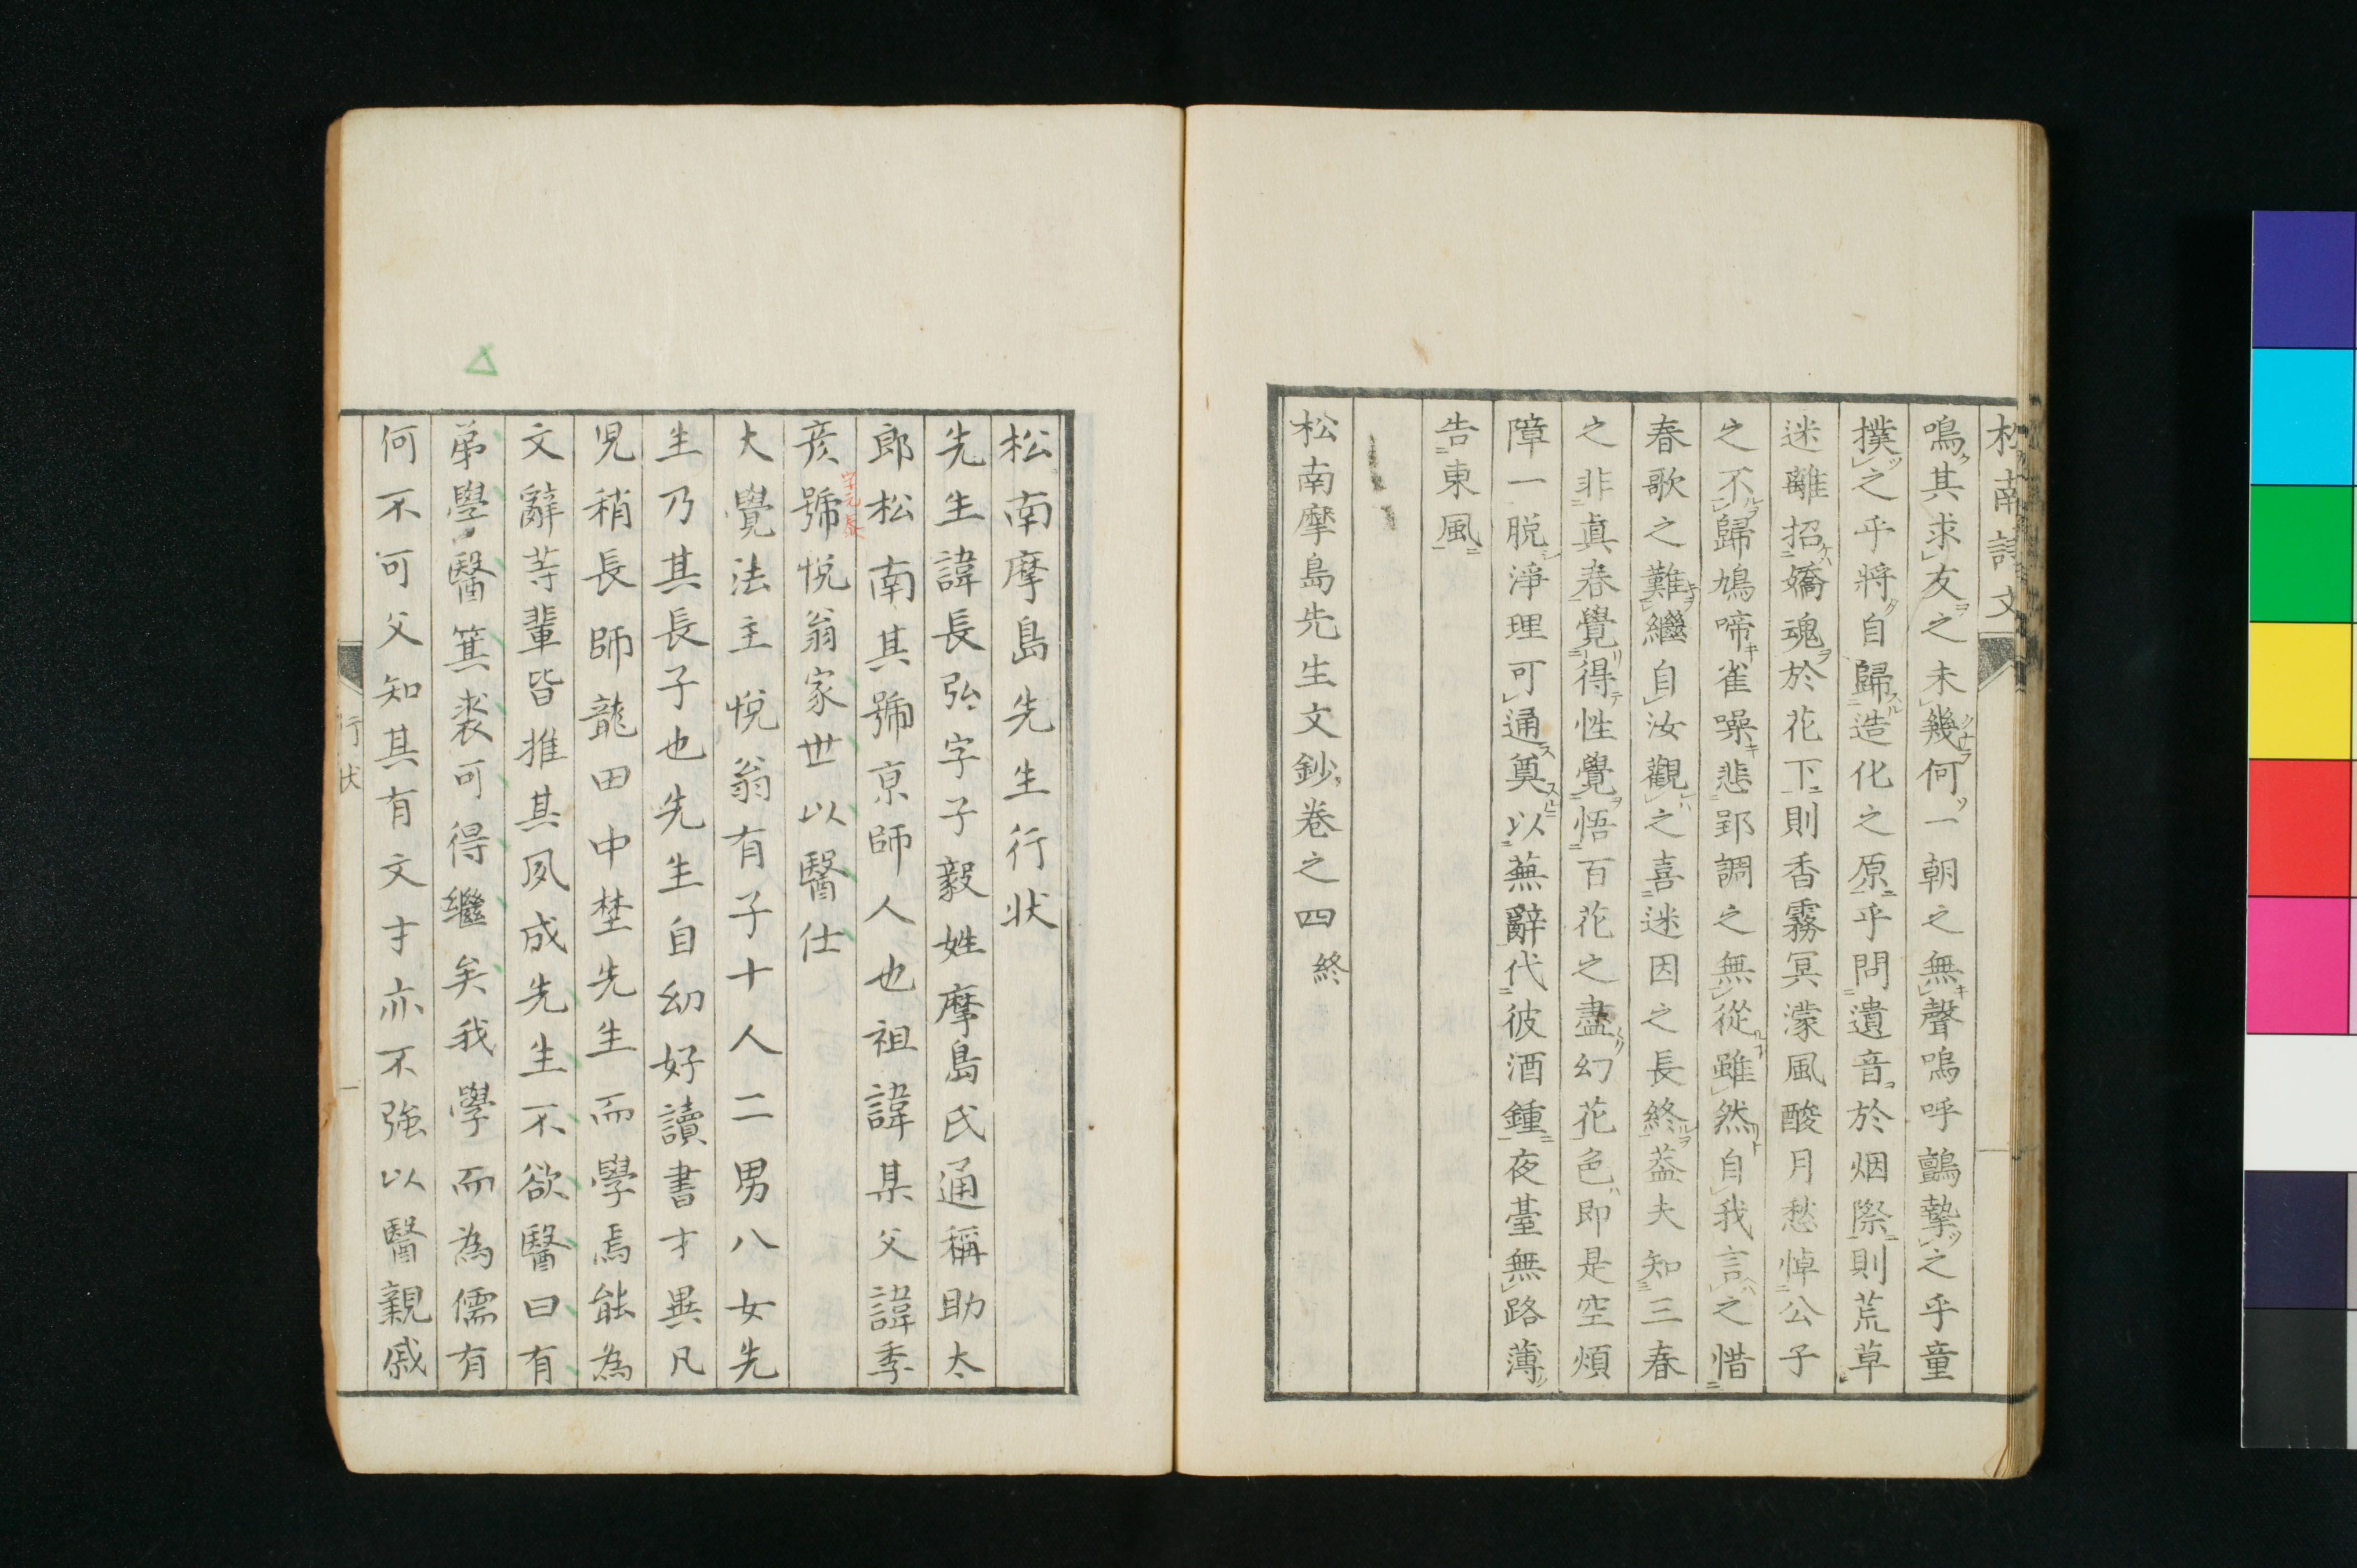 松南詩文
鳴其求友之未幾何一朝之無聲嗚呼鸇摯之乎童
撲之乎將自歸造化之原乎問遺音於烟際則荒草
迷離招嬌魂於花下則香霧冥濛風酸月愁悼公子
之不歸鳩啼雀噪悲郢調之無從雖然自我言之惜
春歌之難繼自汝觀之喜迷因之長終葢夫知三春
之非真春覺得性覺悟百花之盡幻花色即是空煩
障一脱淨理可通奠以蕪辭代彼酒鍾夜臺無路薄
告東風
松南摩島先生文鈔卷之四終
松南摩島先生行狀
先生諱長弘字子毅姓摩島氏通稱助太
郎松南其號京師人也祖諱某父諱季
彦號悦翁家世以醫仕
字元泰
大覺法主悅翁有子十人二男八女先
生乃其長子也先生自幼好讀書才異凡
児稍長師龍田中埜先生而學焉能為
文辭等輩皆推其夙成先生不欲醫曰有
弟學醫箕裘可得繼矣我學而為儒有
何不可父知其有文才亦不強以醫親戚
行状
一